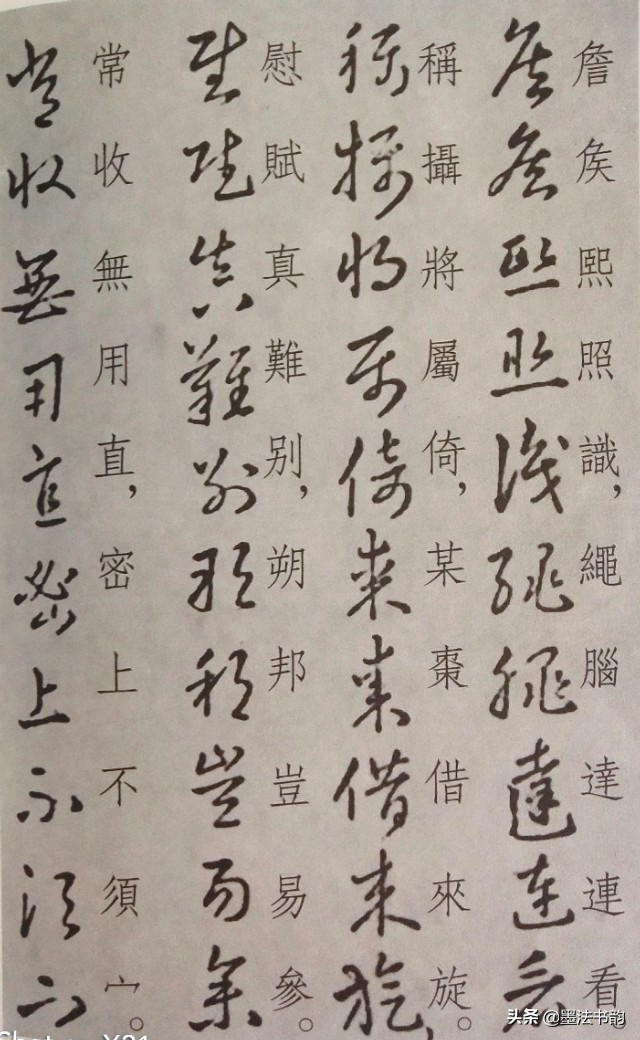 詹矦熙照識，繩腦達連看
稱攝將屬倚，某棗借來旋。
慰賦真難别，朔邦豈易參。
常收無用直，密上不須宀。
头条 @墨法书韵